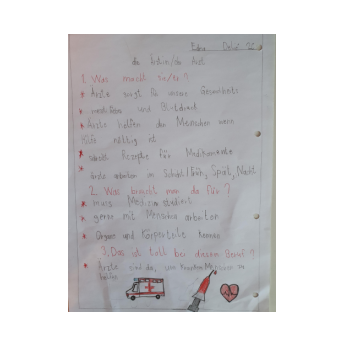 die Ärztin/der Arzt
1. Was macht sie/er?
Ärzte sorgt für unsere Gesundheit
und Blutdruck
Ärzte helfen den Menschen wenn
Hilfe nötig ist
schreibt Rezepte für Medikamente
Ärzte arbeiten in Schicht/Früh, Spät, Nacht
2. Was braucht man da für?
muss Medizin studiert
gerne mit Menschen arbeiten
Organe und Körperteile kennen
3. Das ist toll bei diesem Beruf?
Ärzte sind da, um kranken Menschen zu
helfen